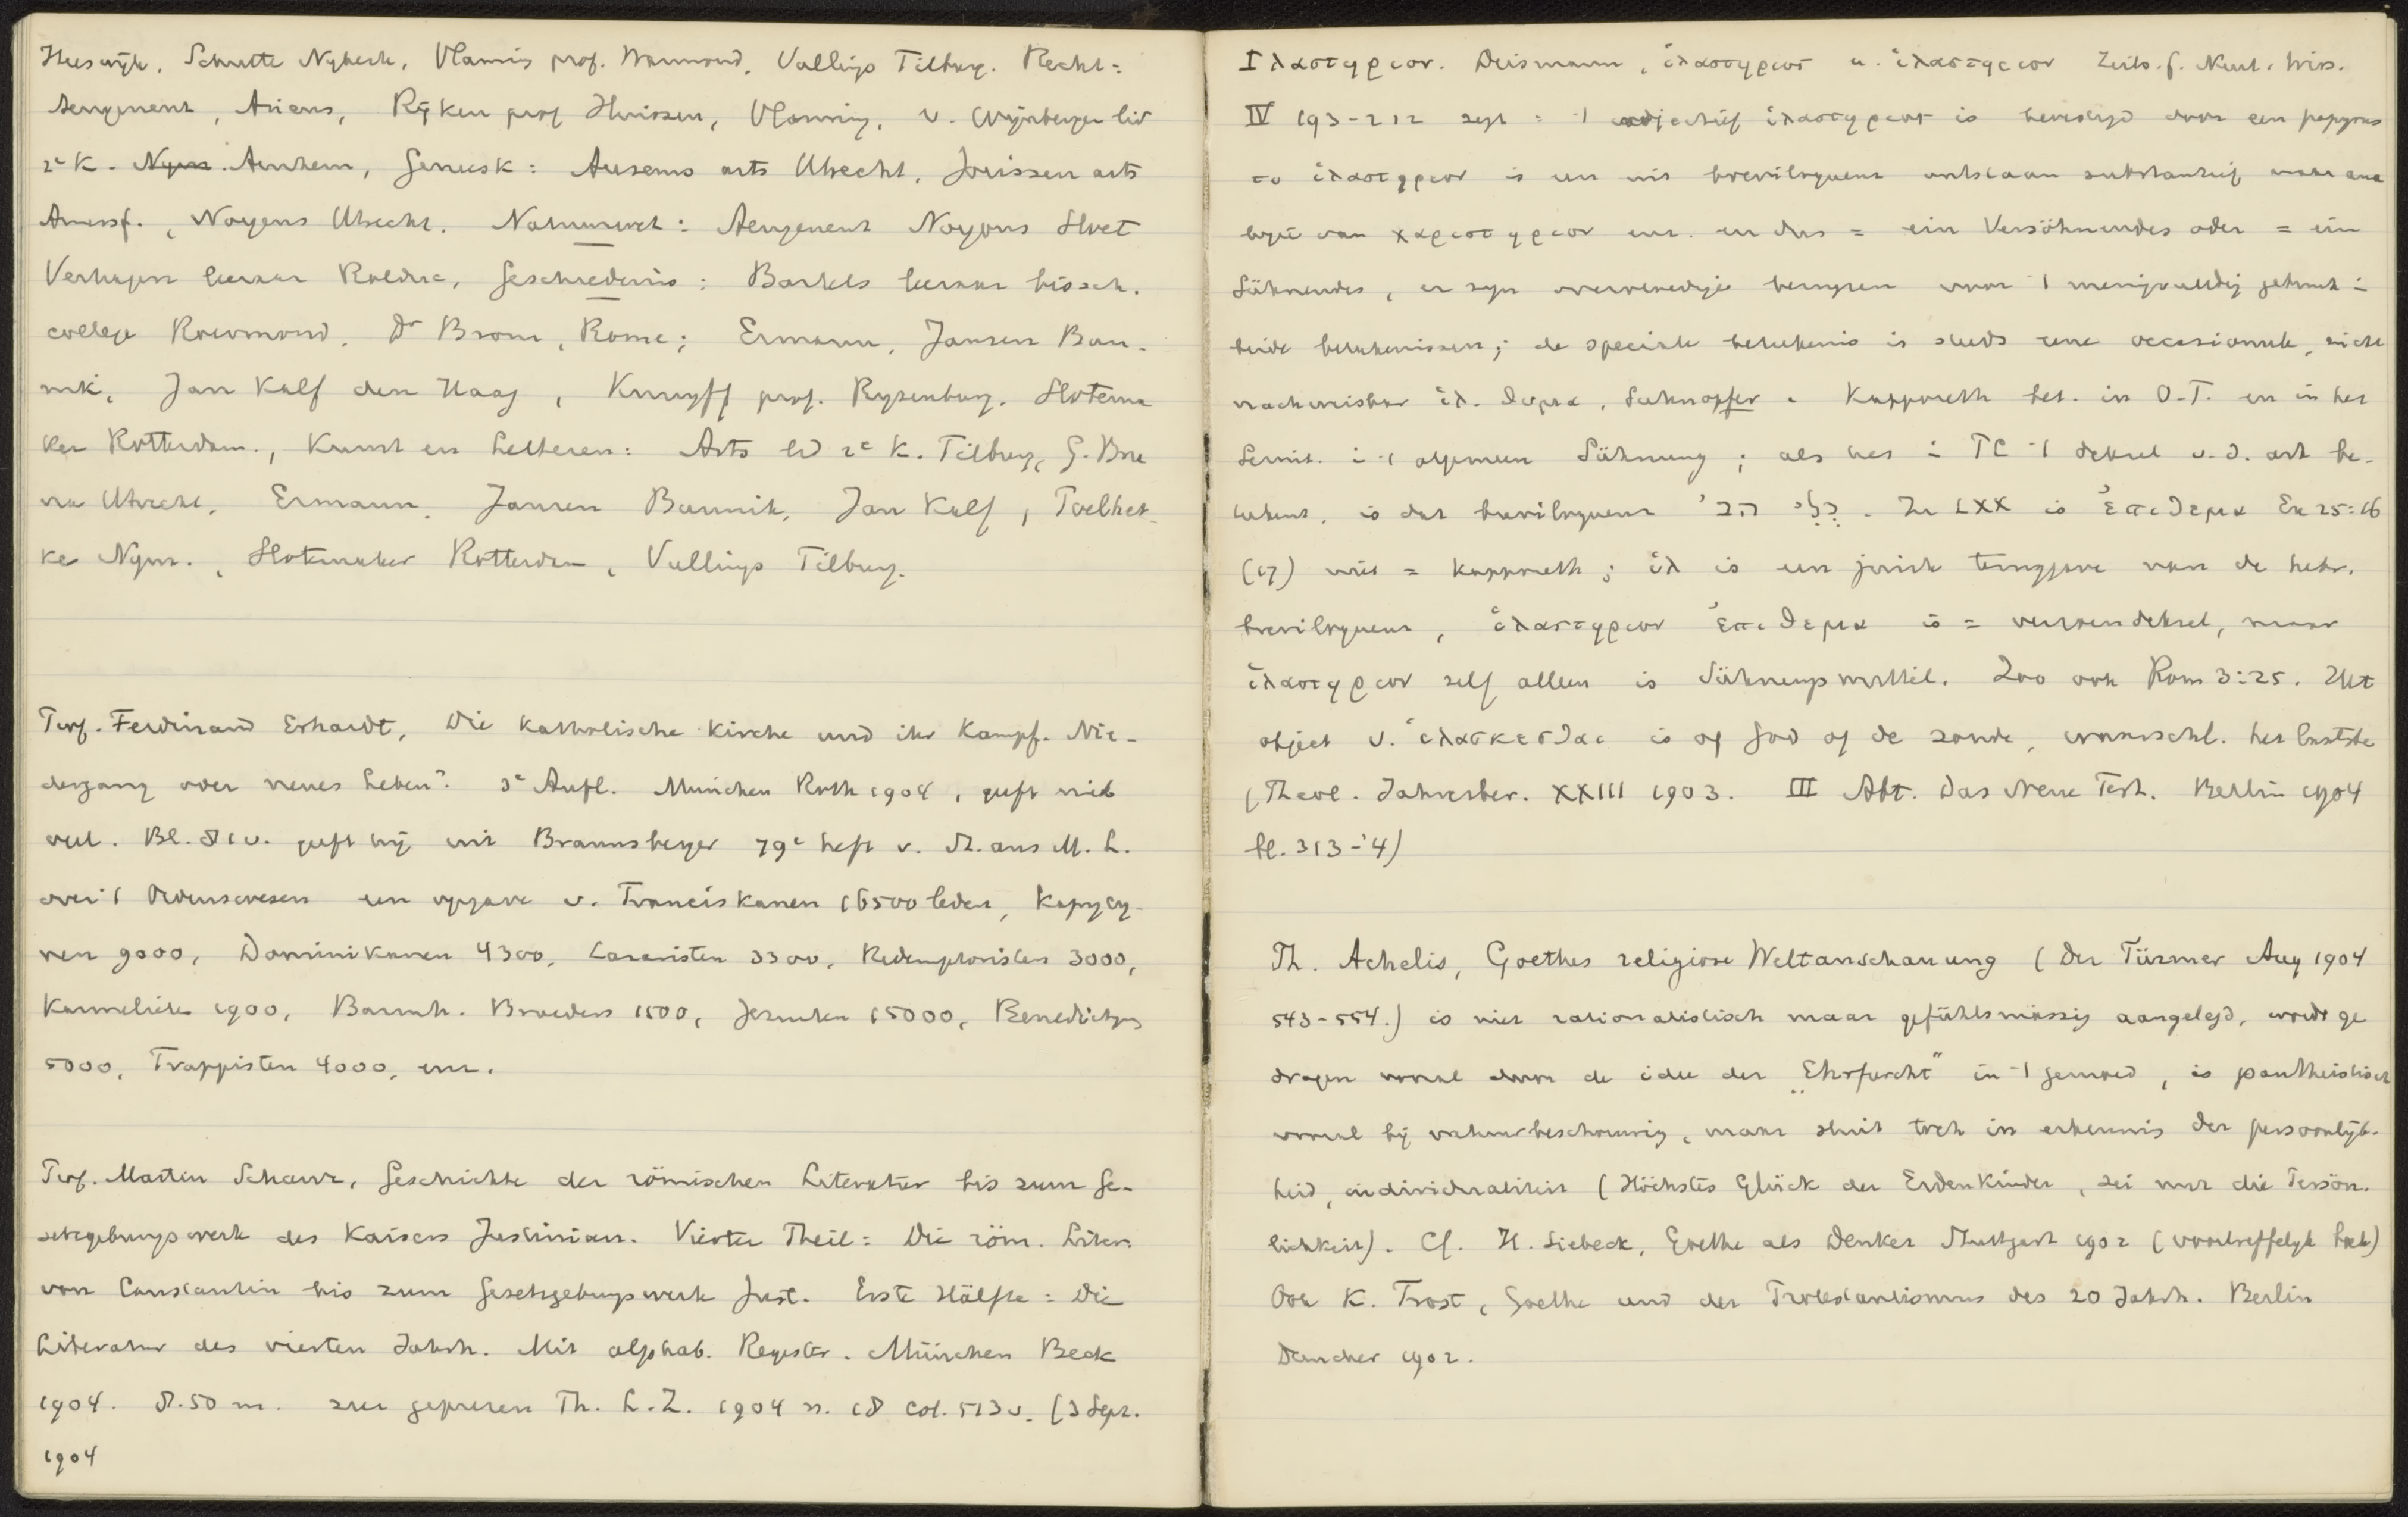 Heeswijk, Schutte Nykerk, Vlaming prof. Warmond, Vullings Tilburg. Recht:
Aengenent, Ariens, Rijken prof Huissen, Vlaming, v. Wijnbergen lid
2e K. Nym. Arnhem, Geneesk: Ausems arts Utrecht, Jorissen arts
Amersf., Noyons Utrecht. Natuurwet: Aengenent Noyons Sluet
Verhagen leeraar Rolduc, Geschiedenis: Bartels leeraar bissch.
college Roermond, Dr Brom, Rome; Ermann, Jansen Bun-
nik, Jan Kalf den Haag, Knuyff prof. Rysenburg, Slotema
ker Rotterdam., Kunst en Letteren: Arts lid 2e K. Tilburg, G. Bro
m Utrecht, Ermann, Jansen Bunnik, Jan Kalf, Poelhek-
ke Nym., Slotemaker Rotterdam, Vullings Tilburg.
Prof. Ferdinand Erhardt, Die katholische Kirche und ihr Kampf. Nie-
dergang oder neues Leben? 3e Aufl. München Roth 1904, geeft niet
veel. Bl. 81 v. geeft hij uit Braunsberger 79e heft v. St. aus M. L.
over 't Ordenswesen een opgave v. Franciskanen 16500 leden, Kapucy-
nen 9000, Dominikanen 4300, Lazaristen 3300, Redemptoristen 3000,
Karmelieten 1900, Barmh. Broeders 1500, Jezuiten 15000, Benedictyns
5000, Trappisten 4000, enz.
Prof. Martin Schanz, Geschichte der römischen Literatur bis zum Ge-
setzgebungswerk des Kaisers Justinian. Vierter Theil: Die röm. Liter.
von Constantin bis zum Gesetzgebungswerk Just. Erste Hälfte: Die
Literatur des vierten Jahrh. Mit alphab. Register. München Beck
1904. 8.50 m. zeer geprezen Th. L. Z. 1904 n. 18 col. 513 v. (3 Sept.
1904
Ιλαστηριον. Deismann, ἱλαστηριος u. ἱλαστηριον Zeits. f. Neut. Wiss.
IV 193-212 zegt: 't adjectief ἱλαστηριος is bevestigd door een papyrus
το ἱλαστηριον is een uit breviloquenz ontstaan substantief naar ana
logie van χαριστηριον enz. en dus = ein Versöhnendes oder = ein
Sühnendes, er zyn overvloedige bewyzen voor 't menigvuldig gebruik i
beide beteekenissen; de speciale beteekenis is steeds eene occasionele, nicht
nachweisbar ἱλ. θυμα, Sühnopfer. Kapporeth bet. in O.T. en in het
Semit. i 't algemeen Sühnung; als het i PC 't deksel v. d. ark be-
teekent, is dat breviloquenz. In LXX is ἐπιθεμα Ex 25:16
(17) niet = kapporeth; ἱλ is een juiste teruggave van de hebr.
breviloquenz, ἱλαστηριον ἐπιθεμα is = verzoendeksel, maar
ἱλαστηριον zelf alleen is Sühnungsmittel. Zoo ook Rom 3:25. Het
object v. ἱλασκεσθαι is of God of de zonde, waarschl. het laatste
(Theol. Jahresber. XXIII 1903. III Abt. Das Neue Test. Berlin 1904
bl. 313-'4)
Th. Achelis, Goethes religiöse Weltanschauung (Der Türmer Aug 1904
543-554.) is niet rationalistisch maar gefühlsmässig aangelegd, wordt ge
dragen vooral door de idee der „Ehrfurcht" in 't gemoed, is pantheistisch
vooral bij natuurbeschouwing, maar sluit toch in erkennis der persoonlijk-
heid, individualiteit (Höchstes Glück der Erdenkinder, sei nur die Persön-
lichkeit). Cf. H. Siebeck, Goethe als Denker Stuttgart 1902 (voortreffelyk boek)
Ook K. Trost, Goethe und der Protestantismus des 20 Jahrh. Berlin
Duncker 1902.